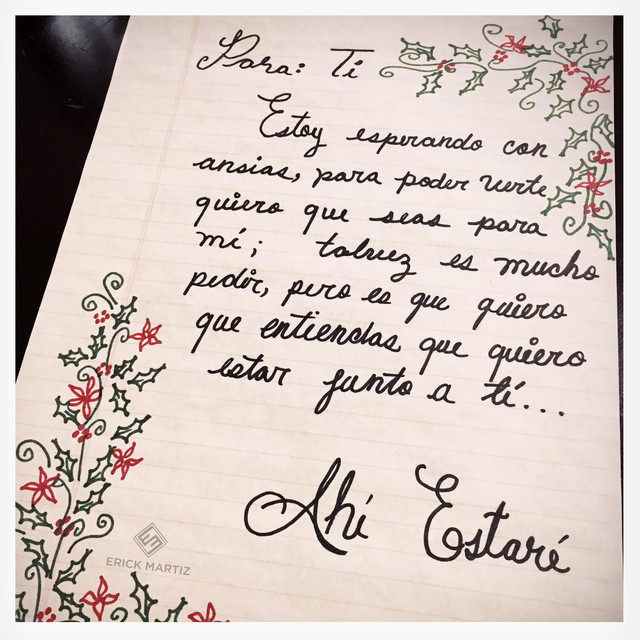 Para: Ti
Estoy esperando con
ansias, para poder verte,
quiero que seas para
mí; talvez es mucho
pedir, pero es que quiero
que entiendas que quiero
estar junto a tí...
Ahí Estaré
EM
ERICK MARTIZ